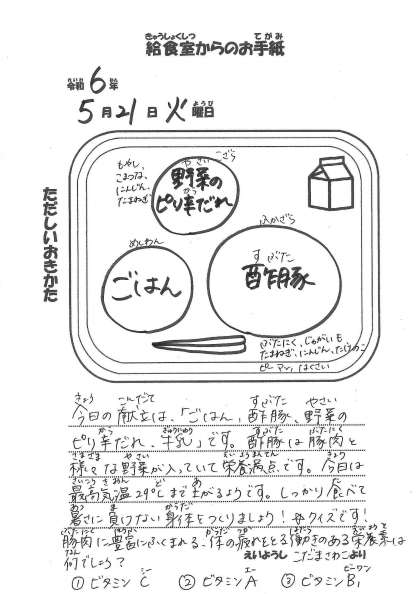 給食室からのお手紙
令和6年
5月21日火曜日
ただしいおきかた
もやし、
こまつな、
にんじん、
たまねぎ
こざら
野菜の
ピリ辛だれ
めしわん
ごはん
ふかざら
酢豚
ぶたにく、じゃがいも
たまねぎ、にんじん、たけのこ
ピーマン、はくさい
今日の献立は、「ごはん、酢豚、野菜の
ピリ辛だれ、牛乳」です。酢豚は豚肉と
様々な野菜が入っていて栄養満点です。今日は
最高気温29℃まで上がるようです。しっかり食べて
暑さに負けない身体をつくりましょう!☆クイズです!
豚肉に豊富にふくまれる、体の疲れをとる働きのある栄養素は
何でしょう?
えいようし こだまさわこより
①ビタミンC ②ビタミンA ③ビタミンB₁